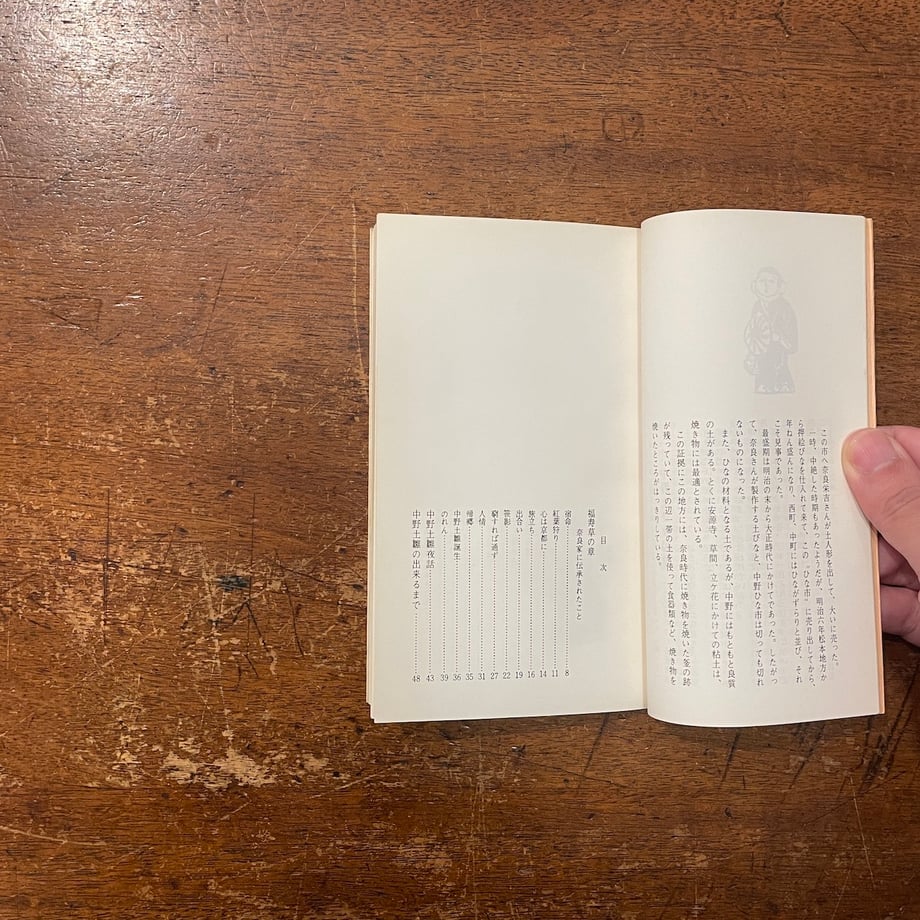 この市へ奈良栄吉さんが土人形を出して、大いに売った。
一時、中絶した時期もあったようだが、明治六年松本地方か
ら押絵びなを仕入れて来て、この〝ひな市〟に売り出してから、
年ねん盛んになり、西町、中町にはひながずらりと並び、それ
こそ見事であった。
最盛期は明治の末から大正時代にかけてであった。したがっ
て、奈良さんが製作する土びなと、中野ひな市は切っても切れ
ないものになった。
また、ひなの材料となる土であるが、中野にはもともと良質
の土がある。とくに安源寺、草間、立ケ花にかけての粘土は、
焼き物には最適とされている。
この証拠にこの地方には、奈良時代に焼き物を焼いた釜の跡
が残っていて、この辺一帯の土を使って食器類など、焼き物を
焼いたところがはっきりしている。
目次
福寿草の章
奈良家に伝承されたこと
宿命 8
紅葉狩り 11
心は京都に 14
旅立ち 16
出合い 19
笹影 22
窮すれば通ず 27
人情 31
帰郷 35
中野土雛誕生 36
のれん 39
中野土雛夜話 43
中野土雛の出来るまで 48